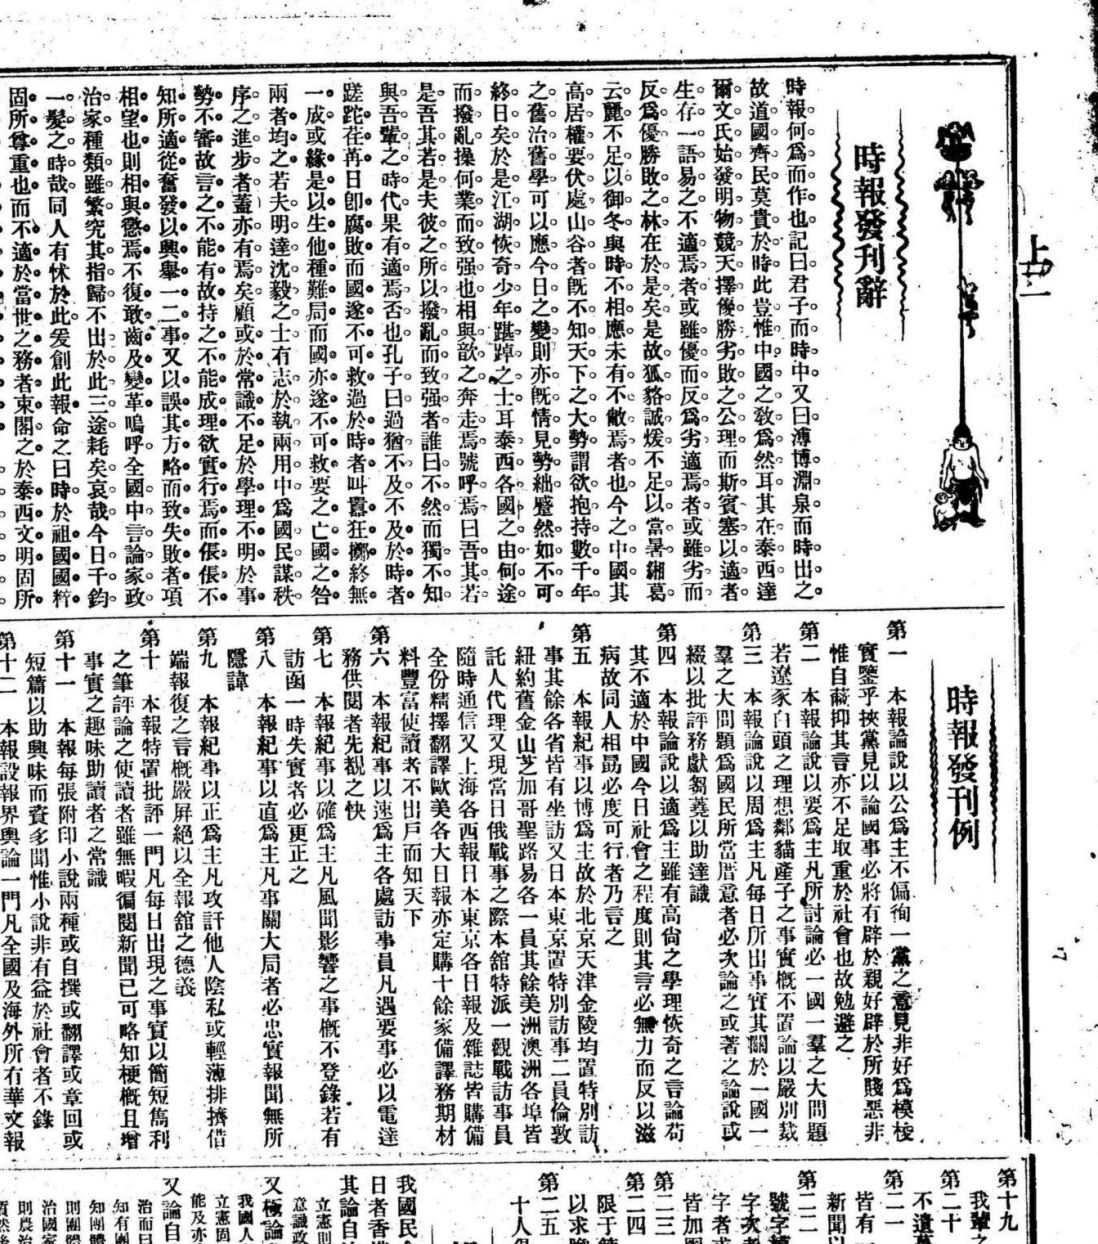 時報發刊辭
時報何爲而作也記曰君子而時中又曰溥博淵泉而時出之
故道國齊民莫貴於時此豈惟中國之敎爲然耳其在泰西達
爾文氏始發明物競天擇優勝劣敗之公理而斯賓塞以適者
生存一語易之不適焉者或雖優而反爲劣適焉者或雖劣而
反爲優勝敗之林在於是矣是故狐貉誠煖不足以當暑絺葛
云麗不足以御冬與時不相應未有不敝焉者也今之中國其
高居權要伏處山谷者旣不知天下之大勢謂欲抱持數千年
之舊治舊學可以應今日之變則亦旣情見勢絀蹙然如不可
終日矣於是江湖恢奇少年踸踔之士耳泰西各國之由何途
而撥亂操何業而致强也相與歆之奔走焉號呼焉曰吾其若
是吾其若是夫彼之所以撥亂而致强者誰曰不然而獨不知
與吾輩之時代果有適焉否也孔子曰過猶不及不及於時者
蹉跎荏苒日卽腐敗而國遂不可救過於時者叫囂狂擲終無
一成或緣是以生他種難局而國亦遂不可救要之亡國之咎
兩者均之若夫明達沈毅之士有志於執兩用中爲國民謀秩
序之進步者蓋亦有焉矣顧或於常識不足於學理不明於事
勢不審故言之不能有故持之不能成理欲實行焉而倀倀不
知所適從奮發以興舉一二事又以誤其方略而致失敗者項
相望也則相與懲焉不復敢齒及變革嗚呼全國中言論家政
治家種類雖繁究其指歸不出於此三途耗矣哀哉今日千鈞
一髮之時哉同人有怵於此爰創此報命之曰時於祖國國粹
固所尊重也而不適於當世之務者束閣之於泰西文明固所
時報發刊例
第一　本報論說以公爲主不偏徇一黨之意見非好爲模棱
實鑒乎挾黨見以論國事必將有辟於親好辟於所賤惡非
惟自蔽抑其言亦不足取重於社會也故勉避之
第二　本報論說以要爲主凡所討論必一國一羣之大問題
若遼豕白頭之理想鄰貓產子之事實槪不置論以嚴別裁
第三　本報論說以周爲主凡每日所出事實其關於一國一
羣之大問題爲國民所當厝意者必次論之或著之論說或
綴以批評務獻芻蕘以助達識
第四　本報論說以適爲主雖有高尙之學理恢奇之言論苟
其不適於中國今日社會之程度則其言必無力而反以滋
病故同人相勗必度可行者乃言之
第五　本報紀事以博爲主故於北京天津金陵均置特別訪
事其餘各省皆有坐訪又日本東京置特別訪事二員倫敦
紐約舊金山芝加哥聖路易各一員其餘美洲澳洲各埠皆
託人代理又現當日俄戰事之際本舘特派一觀戰訪事員
隨時通信又上海各西報日本東京各日報及雜誌皆購備
全份精擇翻譯歐美各大日報亦定購十餘家備譯務期材
料豐富使讀者不出戶而知天下
第六　本報紀事以速爲主各處訪事員凡遇要事必以電達
務供閱者先覩之快
第七　本報紀事以確爲主凡風聞影響之事槪不登錄若有
訪函一時失實者必更正之
第八　本報紀事以直爲主凡事關大局者必忠實報聞無所
隱諱
第九　本報紀事以正爲主凡攻訐他人陰私或輕薄排擠借
端報復之言槪嚴屏絕以全報舘之德義
第十　本報特置批評一門凡每日出現之事實以簡短雋利
之筆評論之使讀者雖無暇徧閱新聞已可略知梗槪且增
事實之趣味助讀者之常識
第十一　本報每張附印小說兩種或自撰或翻譯或章回或
短篇以助興味而資多聞惟小說非有益於社會者不錄
第十二　本報設報界輿論一門凡全國及海外所有華文報
第十九
我輩之
第二十
不遺
第二一
皆有一
新聞以
第二二
號字
字次
字者
皆加
第二三
第二四
限于
以求
第二五
十人
我國民
日者香港
其論自
立憲則
意識政
又極論
我國人
立憲固
能及亦
又論自
治而曰
知有團
知團體
則團體
治國家
則農治